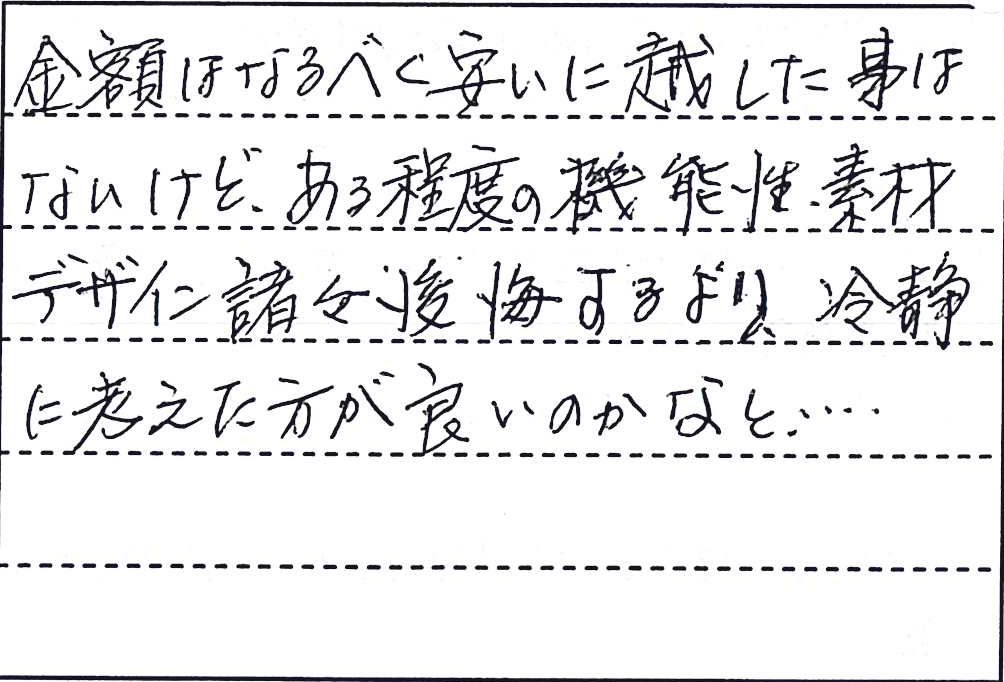 金額はなるべく安いに越した事は
ないけど、ある程度の機能性、素材
デザイン諸々後悔するより、冷静
に考えた方が良いのかなと、····